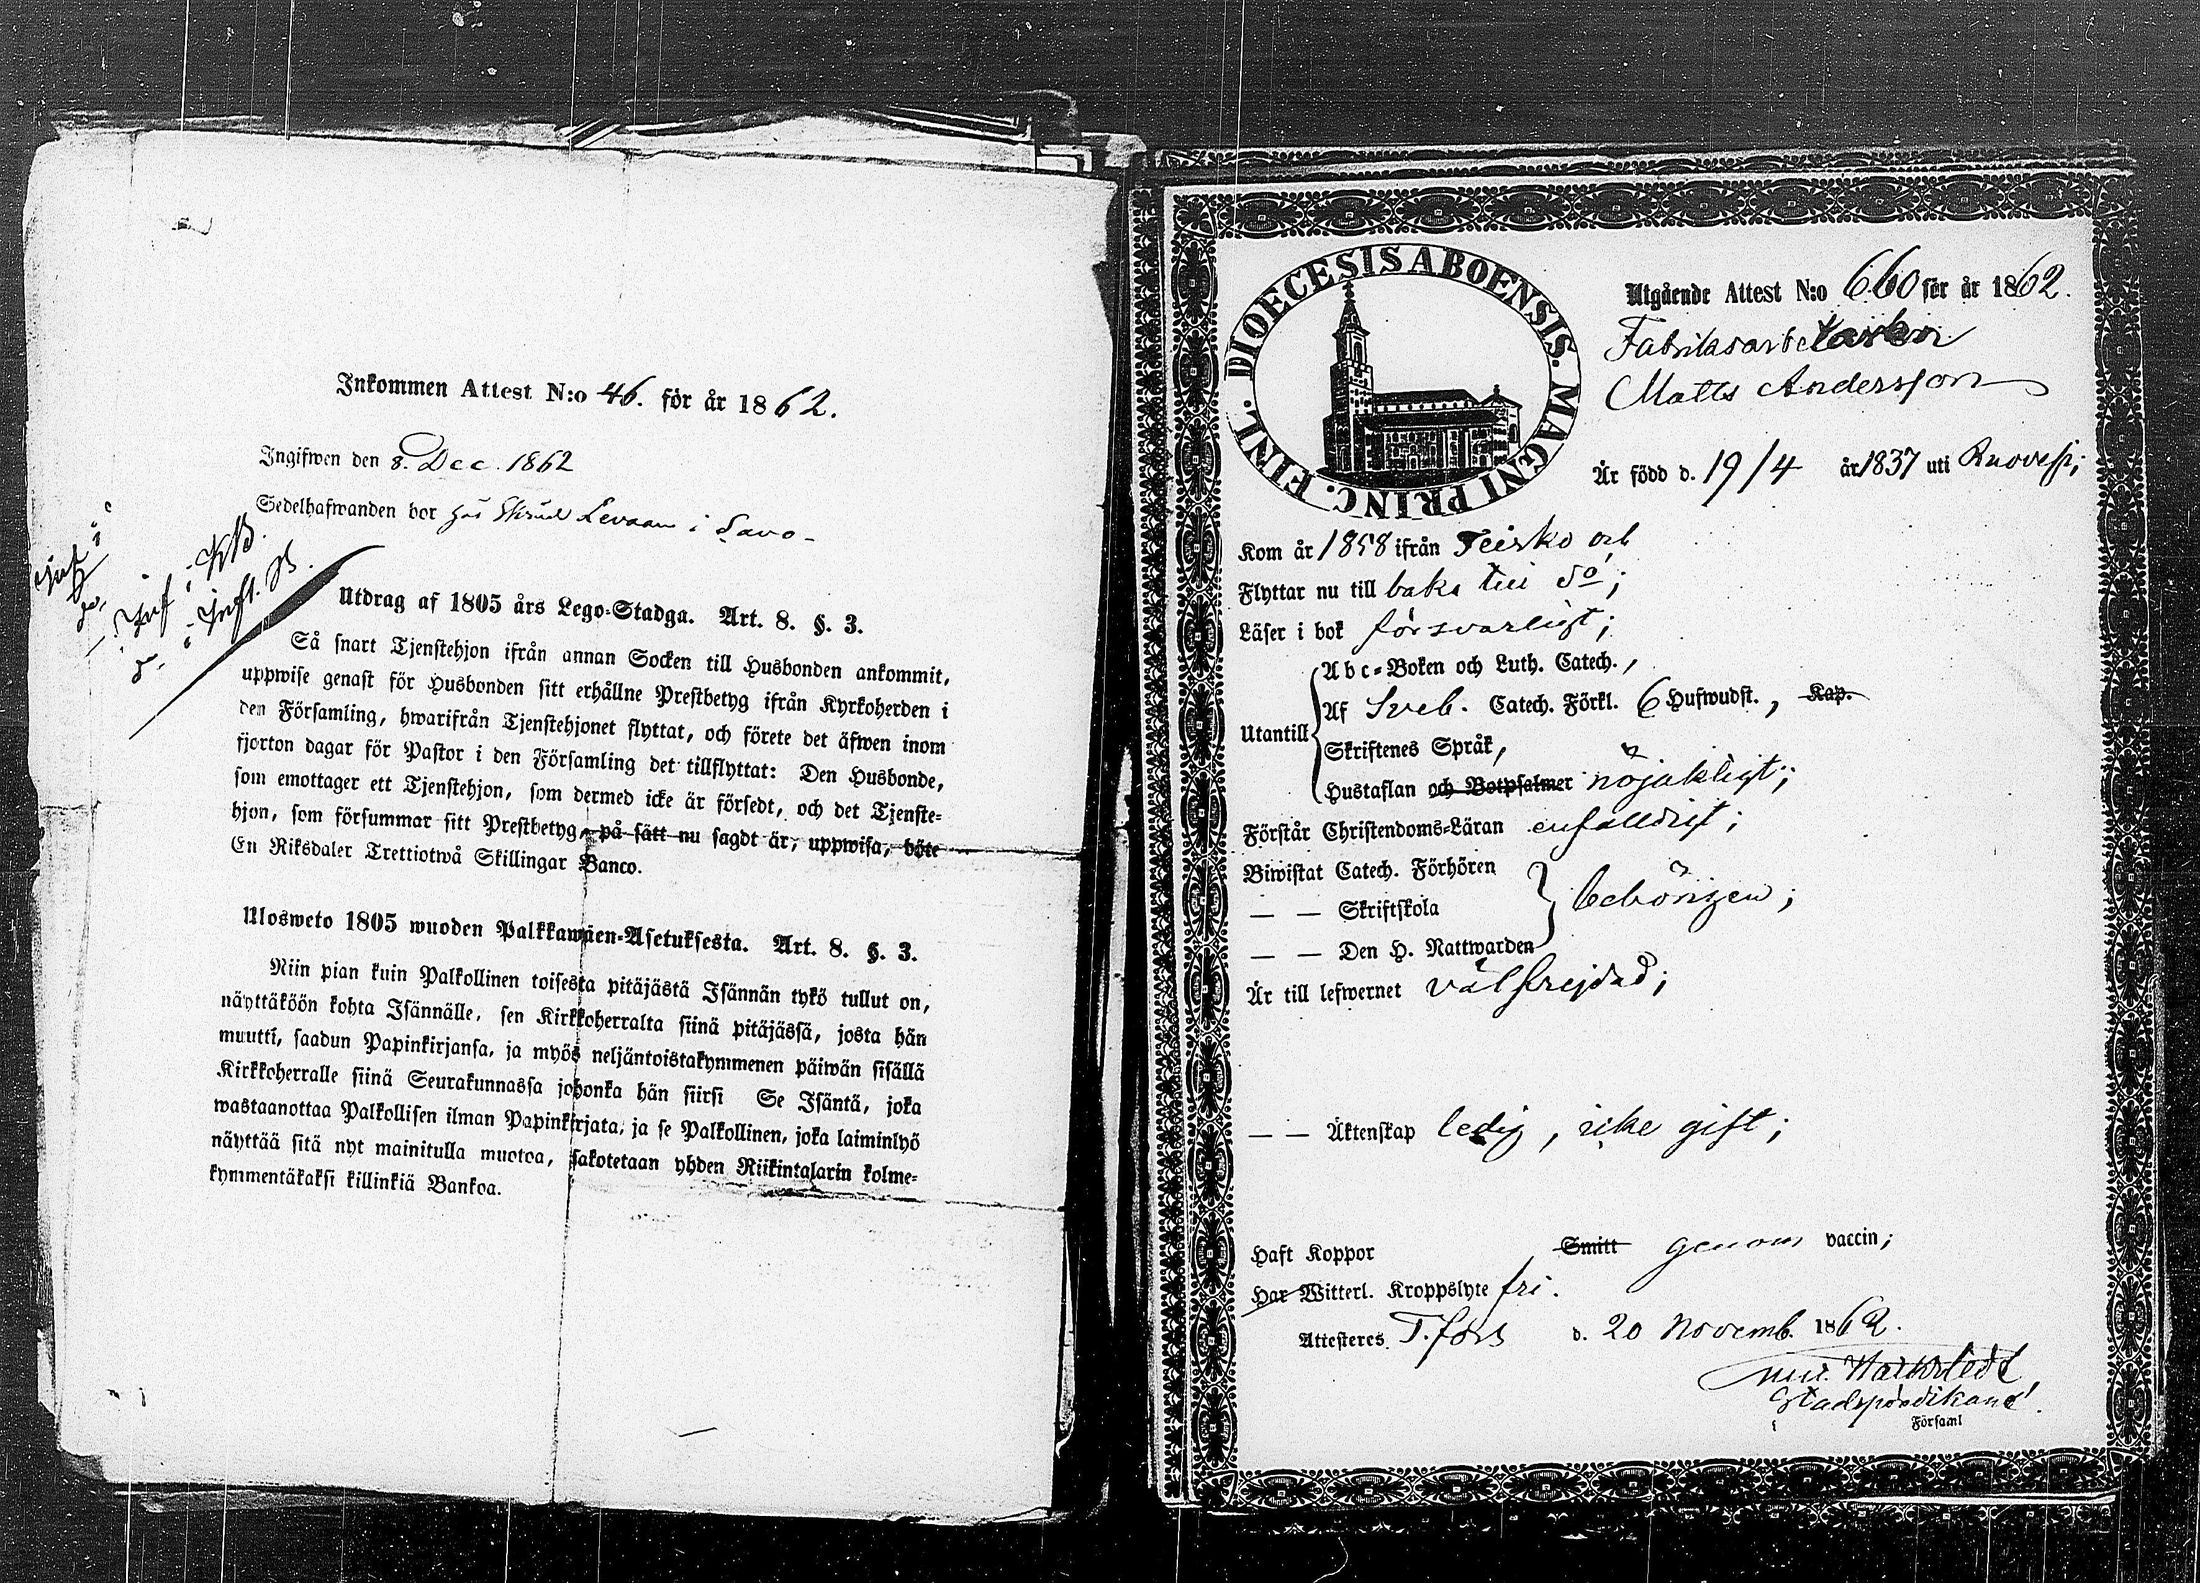 Inkommen Attest N:o 46. för år 1862.
Ingifwen den 8. Dec. 1862
Sedelhafwanden bor hos Levaan i Savo
Utdrag af 1805 års Lego-Stadga. Art. 8. §. 3.
Så snart Tjenstehjon ifrån annan Socken till Husbonden ankommit,
uppwise genast för Husbonden sitt erhållne Prestbetyg ifrån Kyrkoherden i
den Församling, hwarifrån Tjenstehjonet flyttat, och förete det äfwen inom
fjorton dagar för Pastor i den Församling det tillflyttat: Den Husbonde,
som emottager ett Tjenstehjon, som dermed icke är försedt, och det Tjenste-
hjon, som försummar sitt Prestbetyg, på sätt nu sagdt är, uppwisa, böte
En Riksdaler Trettiotwå Skillingar Banco.
Ulosweto 1805 wuoden Palkkawäen-Asetuksesta. Art. 8. §. 3.
Niin pian kuin Palkollinen toisesta pitäjästä Isännän tykö tullut on,
näyttäköön kohta Isännälle, sen Kirkkoherralta siinä pitäjässä, josta hän
muutti, saadun Papinkirjansa, ja myös neljäntoistakymmenen päiwän sisällä
Kirkkoherralle siinä Seurakunnassa johonka hän siirsi Se Isäntä, joka
wastaanottaa Palkollisen ilman Papinkirjata, ja se Palkollinen, joka laiminlyö
näyttää sitä nyt mainitulla muotoa, sakotetaan yhden Riikintalarin kolme-
kymmentäkaksi killinkiä Bankoa.
DIOECESIS ABOENSIS. MAGNI PRINC. FINL.
Utgående Attest N:o 660 för år 1862.
Fabriksarbetaren
Matts Andersson
Är född d. 19/4 år 1837 uti Ruovesi;
Kom år 1858 ifrån Teisko och
Flyttar nu till baka till do;
Läser i bok försvarligt;
Abc-Boken och Luth. Catech.,
Utantill Af Sveb. Catech. Förkl. 6 Hufwudst., Kap.
Skriftenes Språk,
Hustaflan och Botpsalmer nöjaktigt;
Förstår Christendoms-Läran enfaldigt;
Biwistat Catech. Förhören
— — Skriftskola behörigen;
— — Den H. Nattwarden
Är till lefwernet välfrejdad;
— — Äktenskap ledig, icke gift;
Haft Koppor Smitt genom vaccin;
Har Witterl. Kroppslyte fri.
Attesteres T.fors d. 20 Novemb. 1862.
Stadspredikant
Församl